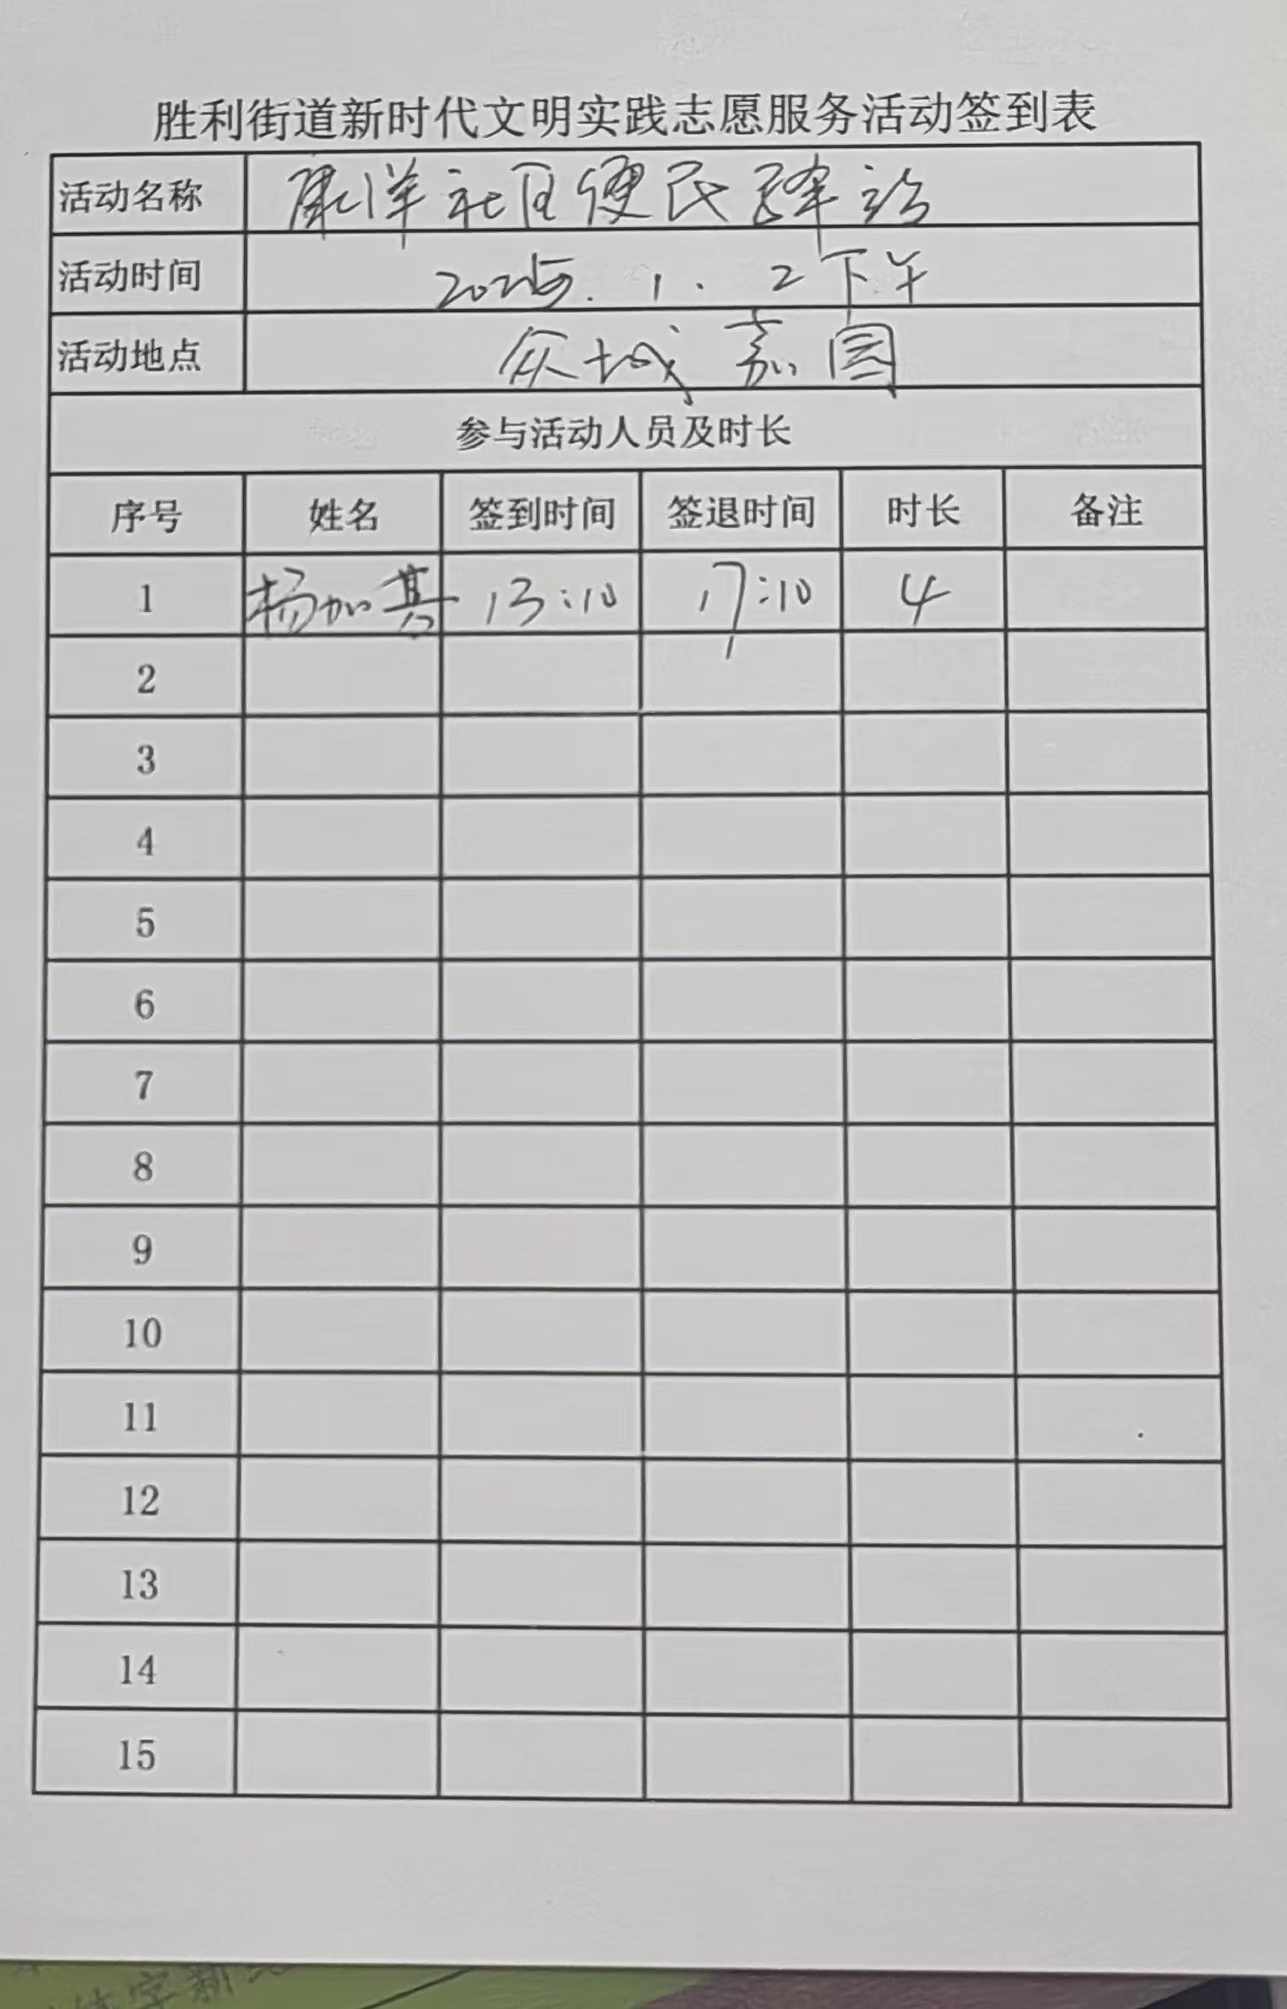 胜利街道新时代文明实践志愿服务活动签到表
活动名称 康洋社区便民驿站
活动时间 2025.1.2下午
活动地点 众城嘉园
参与活动人员及时长
序号 姓名 签到时间 签退时间 时长 备注
1 杨加其 13:10 17:10 4
2
3
4
5
6
7
8
9
10
11
12
13
14
15